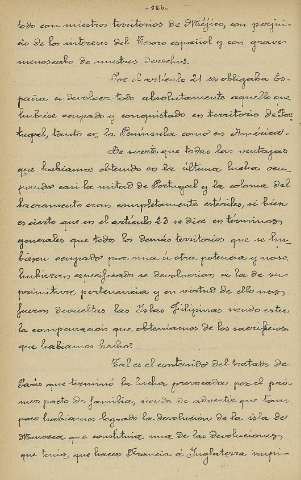 - 186 -
todo con nuestros territorios de Méjico, con perjui-
cio de los intereses del Tesoro español y con grave
menoscabo de nuestros derechos.
Por el artículo 21 se obligaba Es-
paña a devolver todo absolutamente aquello que
hubiese ocupado y conquistado en territorio de Por-
tugal, tanto en la Península como en América.
De suerte que todas las ventajas
que habíamos obtenido en la última lucha ocu-
pando casi la mitad de Portugal y la colonia del
Sacramento eran completamente estériles, si bien
es cierto que en el artículo 23 se dice en términos
generales que todo los demás territorios que se hu-
biesen ocupado por una ú otra potencia y no se
hubieran especificado se devolvieran a la de su
primitiva pertenencia y en virtud de ello nos
fueron devueltas las Islas Filipinas siendo esta
la compensación que obteníamos de los sacrificios
que habíamos hecho.
Tal es el contenido del tratado de
París que terminó la lucha provocada por el pri-
mer pacto de familia, siendo de advertir que tam-
poco habíamos logrado la devolución de la isla de
Menorca que constituía una de las devoluciones
que tenía que hacer Francia á Inglaterra segú-